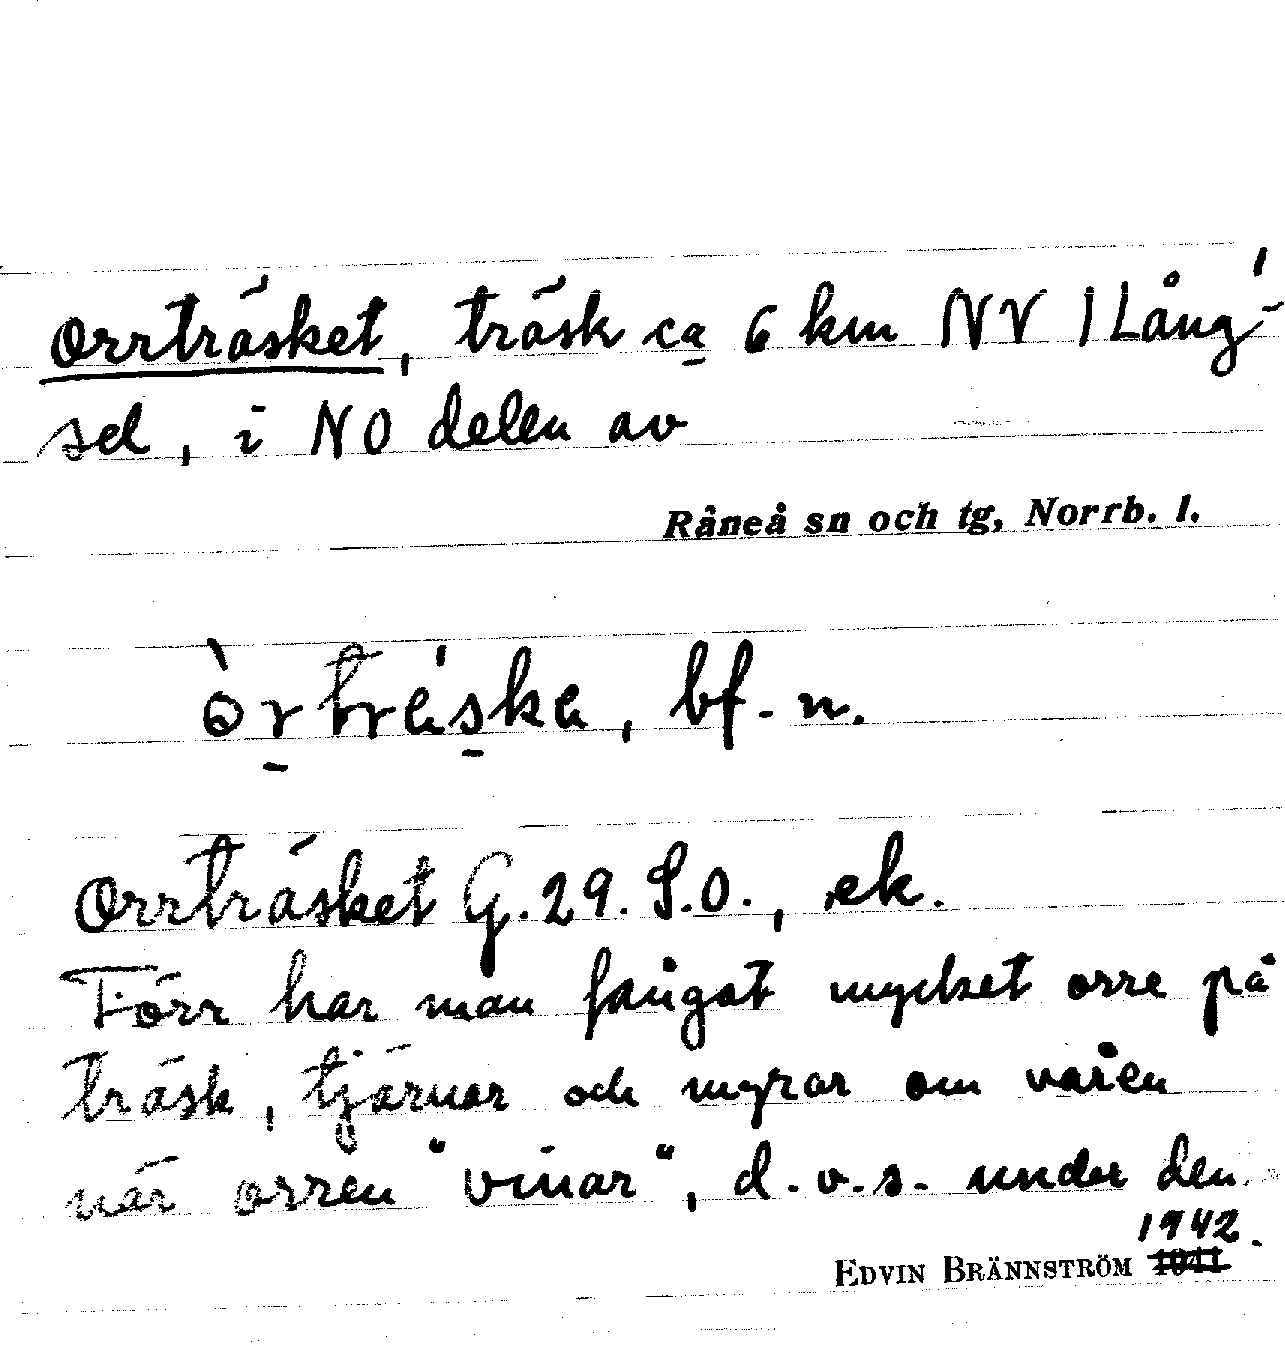 Orrträsket, träsk ca 6 km NV I Lång-
sel, i NO delen av
Råneå sn och tg, Norrb. l.
òrtrǽska, bf. n.
Orrträsket G.29.S.O., ek.
Förr har man fångat mycket orre på
träsk, tjärnar och myrar om våren
när orren "vinar", d.v.s. under den
1942.
EDVIN BRÄNNSTRÖM 1941